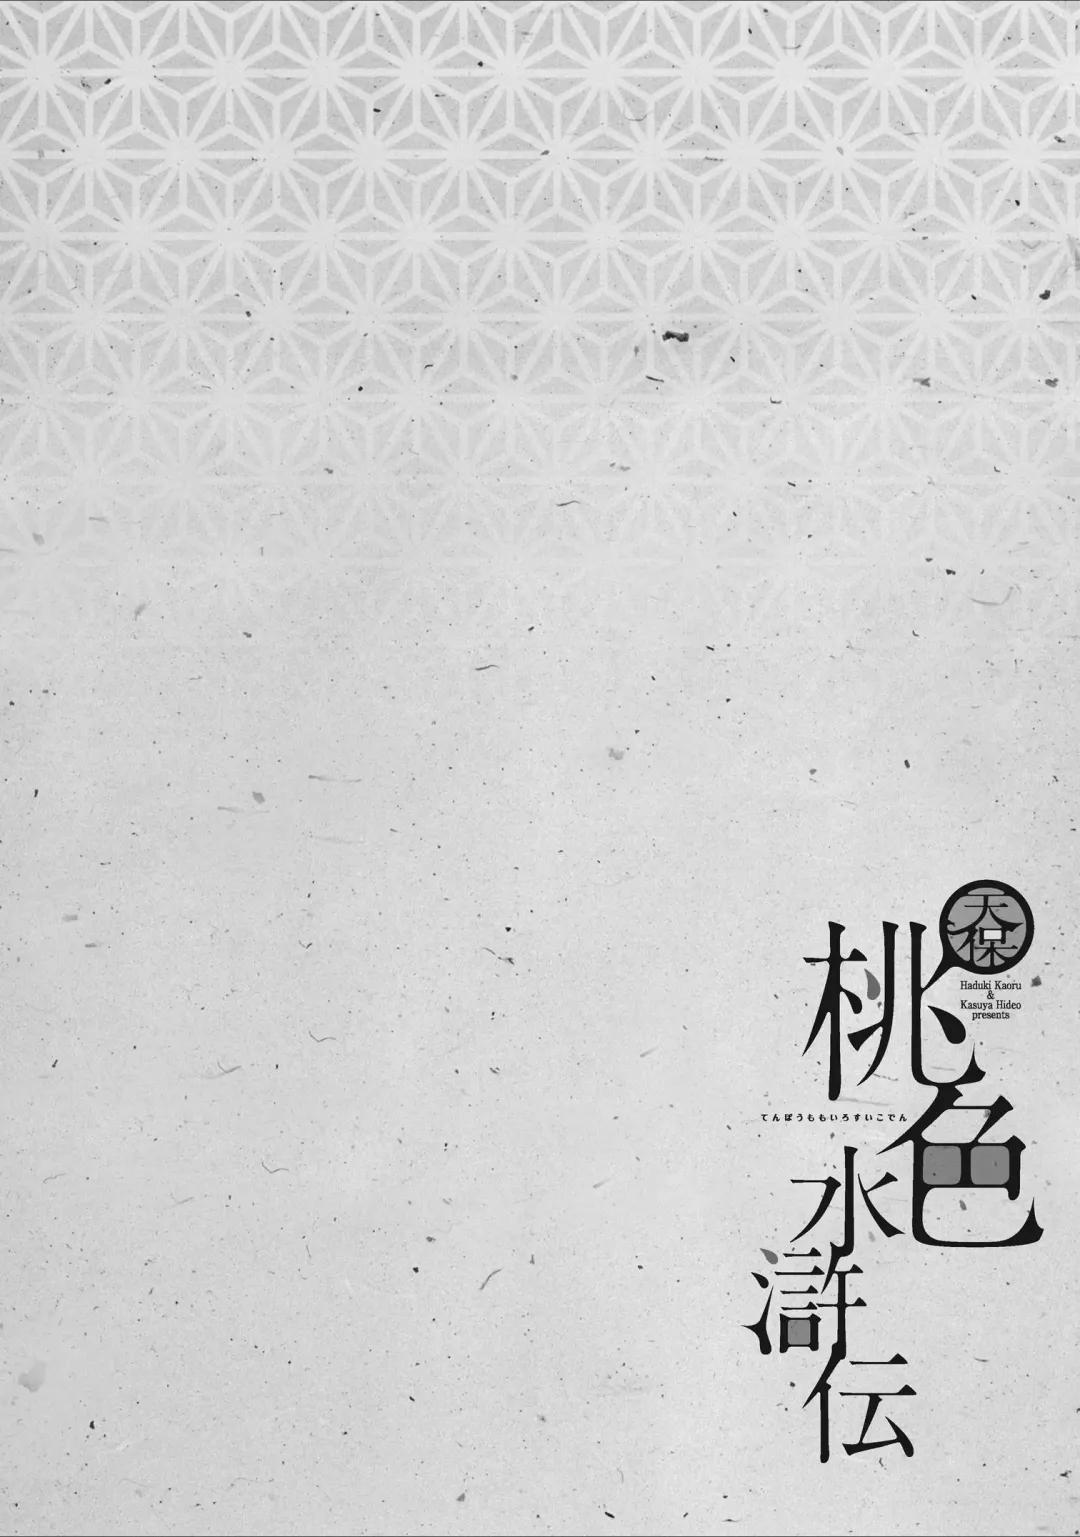 天保
桃色
水滸伝
てんぽうももいろすいこでん
Haduki Kaoru
&
Kasuya Hideo
presents